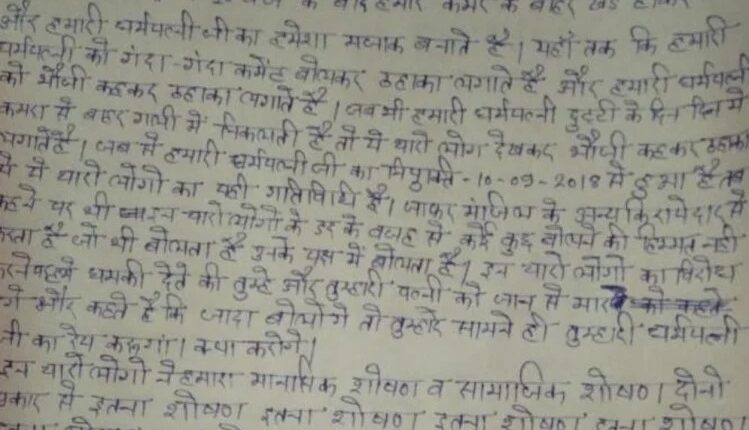 के बाद हमारे कमरे के बाहर खड़े होकर
और हमारी धर्मपत्नी जी का हमेशा मजाक बनाते है। यहाँ तक कि हमारी
धर्मपत्नी को गंदा-गंदा कमेंट बोलकर ठहाका लगाते है और हमारी धर्मपत्नी
को भौजी कहकर ठहाका लगाते है। जब भी हमारी धर्मपत्नी छुट्टी के दिन दिन में
कमरा से बाहर गली में निकलती है तो ये चारो लोग देखकर भौजी कहकर ठहाका
लगाते है। जब से हमारी धर्मपत्नी जी का नियुक्ति -10-09-2018 से हुआ है तब
से ये चारो लोगो का यही गतिविधि है। जाफर मंजिल के अन्य किरायेदार से
कहने पर भी चारो लोगो के डर के वजह से कोई कुछ बोलने की हिम्मत नहीं
करता है जो भी बोलता है उनके पक्ष में बोलता है। इन चारो लोगो का विरोध
करने पहले धमकी देते की तुम्हे और तुम्हारी पत्नी को जान से मार
गे और कहते है कि जादा बोलोगे तो तुम्हारे सामने ही तुम्हारी धर्मपत्नी
जी का रेप करूगां। क्या करोगे।
इन चारो लोगो ने हमारा मानसिक शोषण व सामाजिक शोषण। दोनो
प्रकार से इतना शोषण। इतना शोषण। इतना शोषण। इतना शोषण।